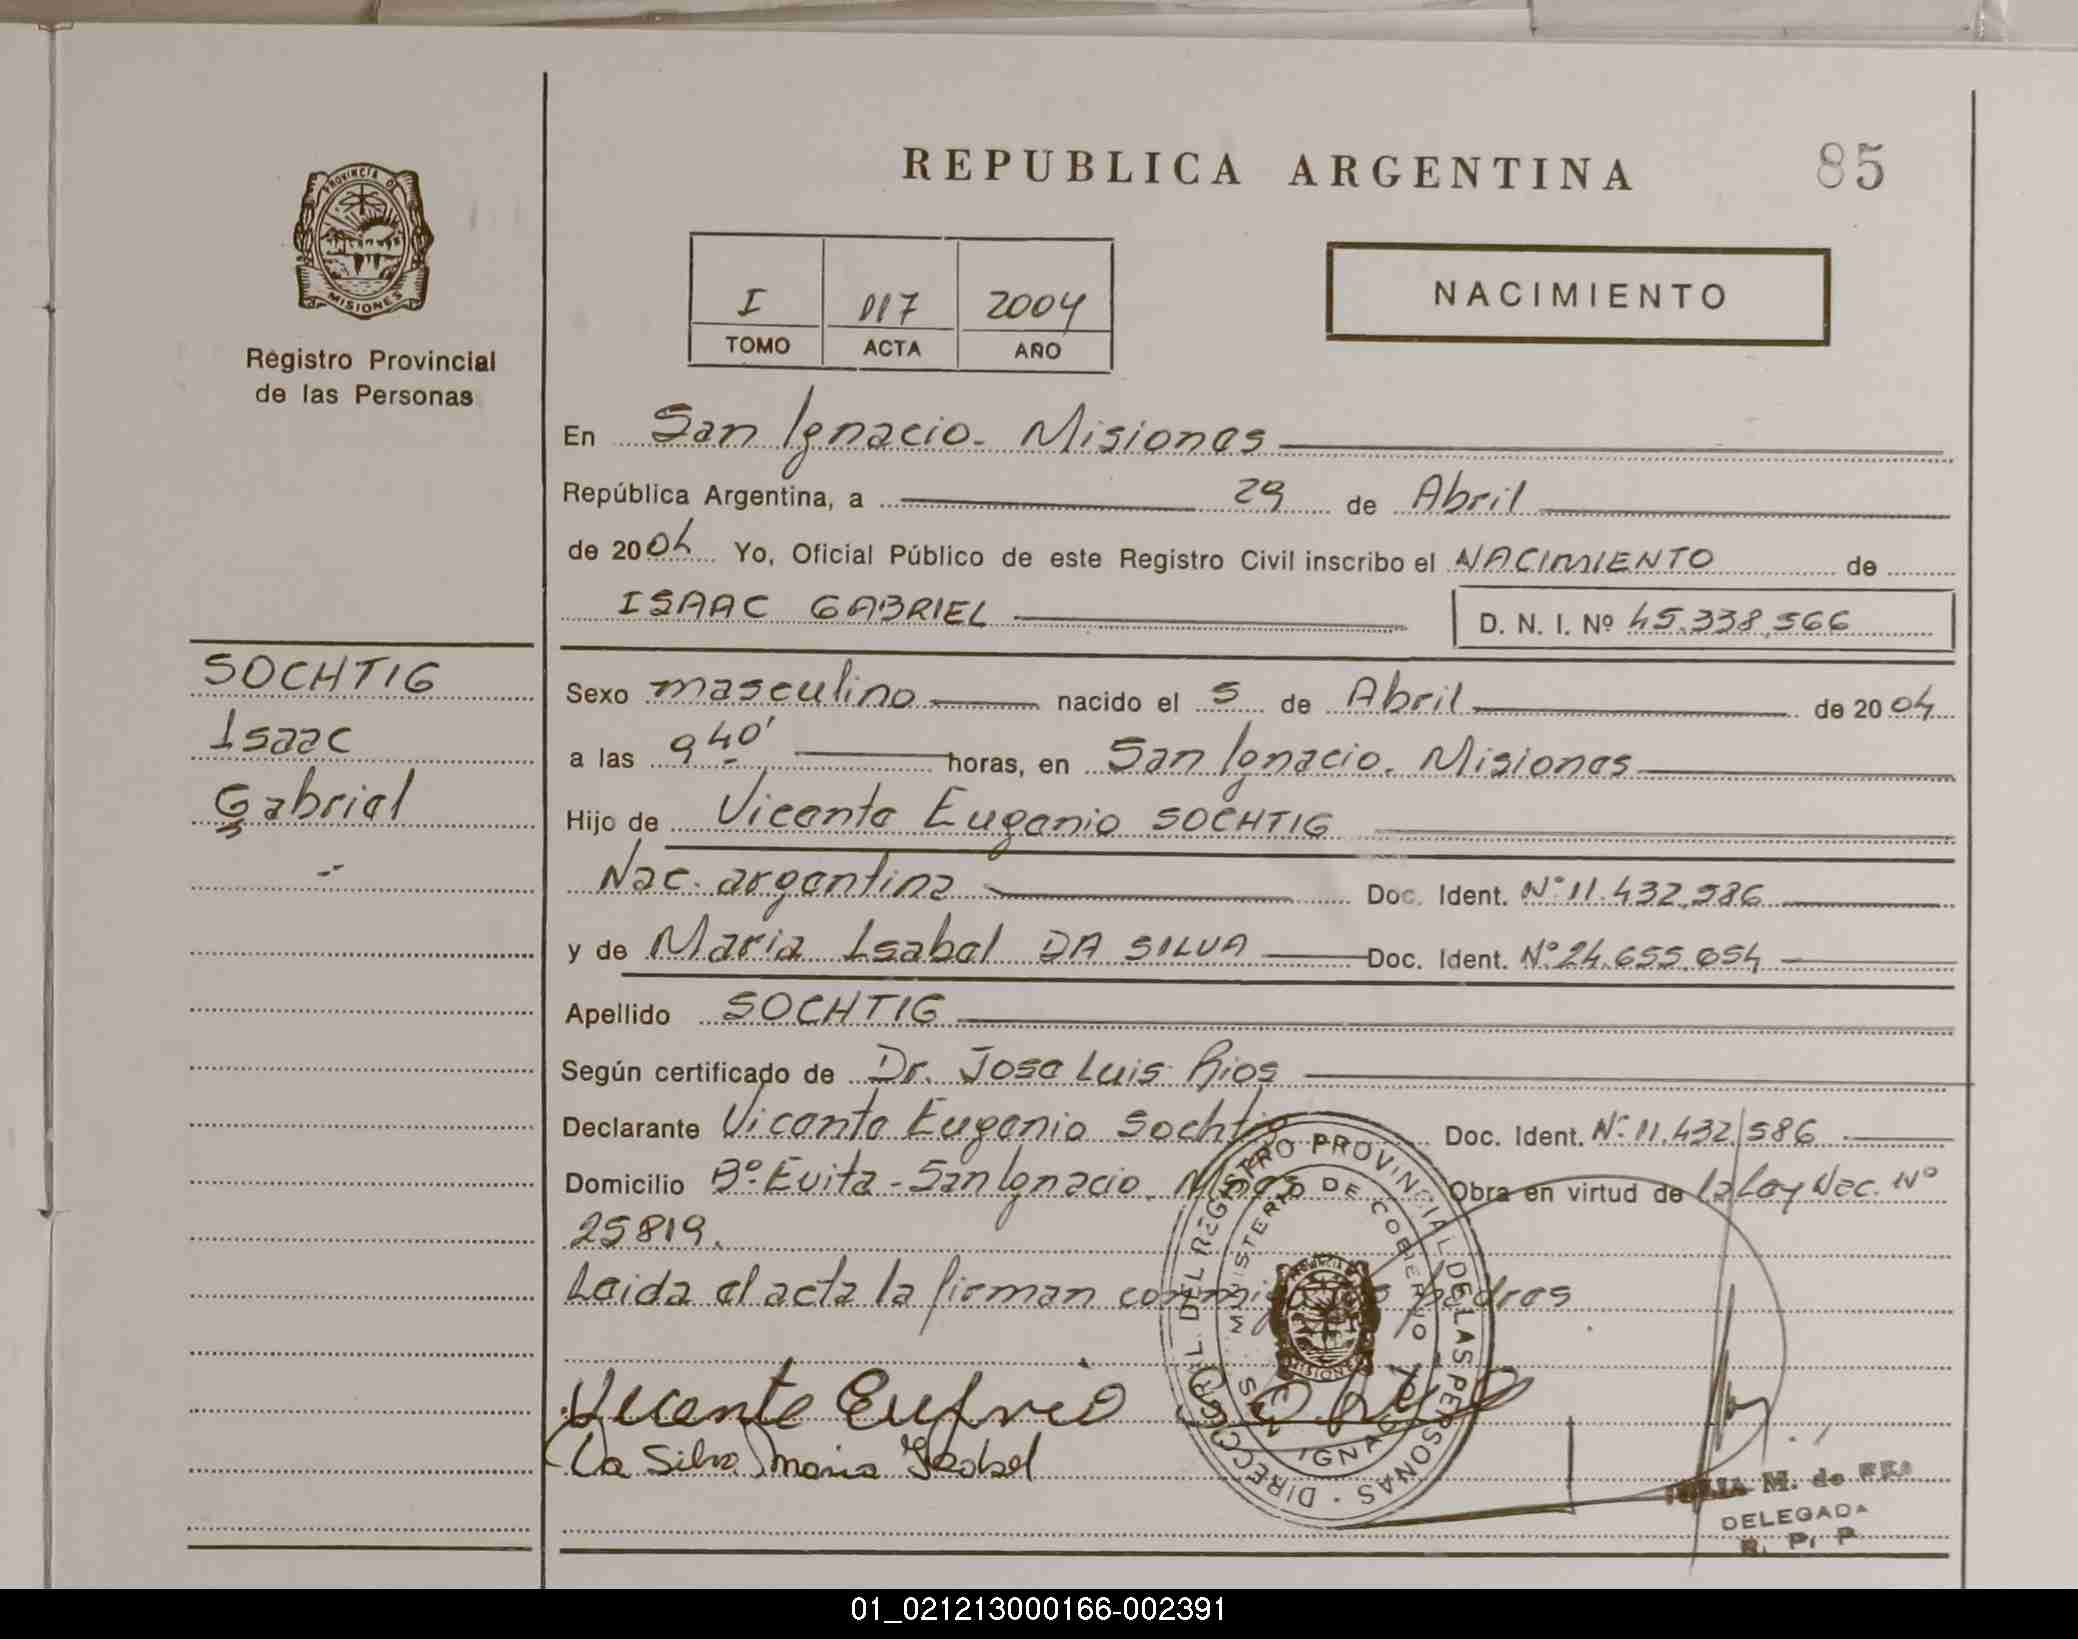 REPUBLICA ARGENTINA
85
PROVINCIA DE
MISIONES
Registro Provincial
de las Personas
I 017 2004
TOMO ACTA AÑO
NACIMIENTO
En San Ignacio. Misiones
República Argentina, a 29 de Abril
de 2004 Yo, Oficial Público de este Registro Civil inscribo el NACIMIENTO de
ISAAC GABRIEL D. N. I. Nº 45.338.566
SOCHTIG
Isaac
Gabriel
Sexo masculino nacido el 5 de Abril de 2004
a las 9 40' horas, en San Ignacio. Misiones
Hijo de Vicente Eugenio SOCHTIG
Nac. argentina Doc. Ident. Nº 11.432.586
y de Maria Isabel DA SILVA Doc. Ident. Nº 24.655.054
Apellido SOCHTIG
Según certificado de Dr. Jose Luis Rios
Declarante Vicente Eugenio Sochtig Doc. Ident. Nº 11.432.586
Domicilio Bº Evita - San Ignacio. Mnes Obra en virtud de la Ley Nac. Nº
25819.
Leida el acta la firman conmigo los padres
DIRECCION GRAL. DEL REGISTRO PROVINCIAL DE LAS PERSONAS
MINISTERIO DE GOBIERNO
MISIONES
Vicente
Da Silva Maria Isabel
M. de
DELEGADA
R. P. P.
01_021213000166-002391